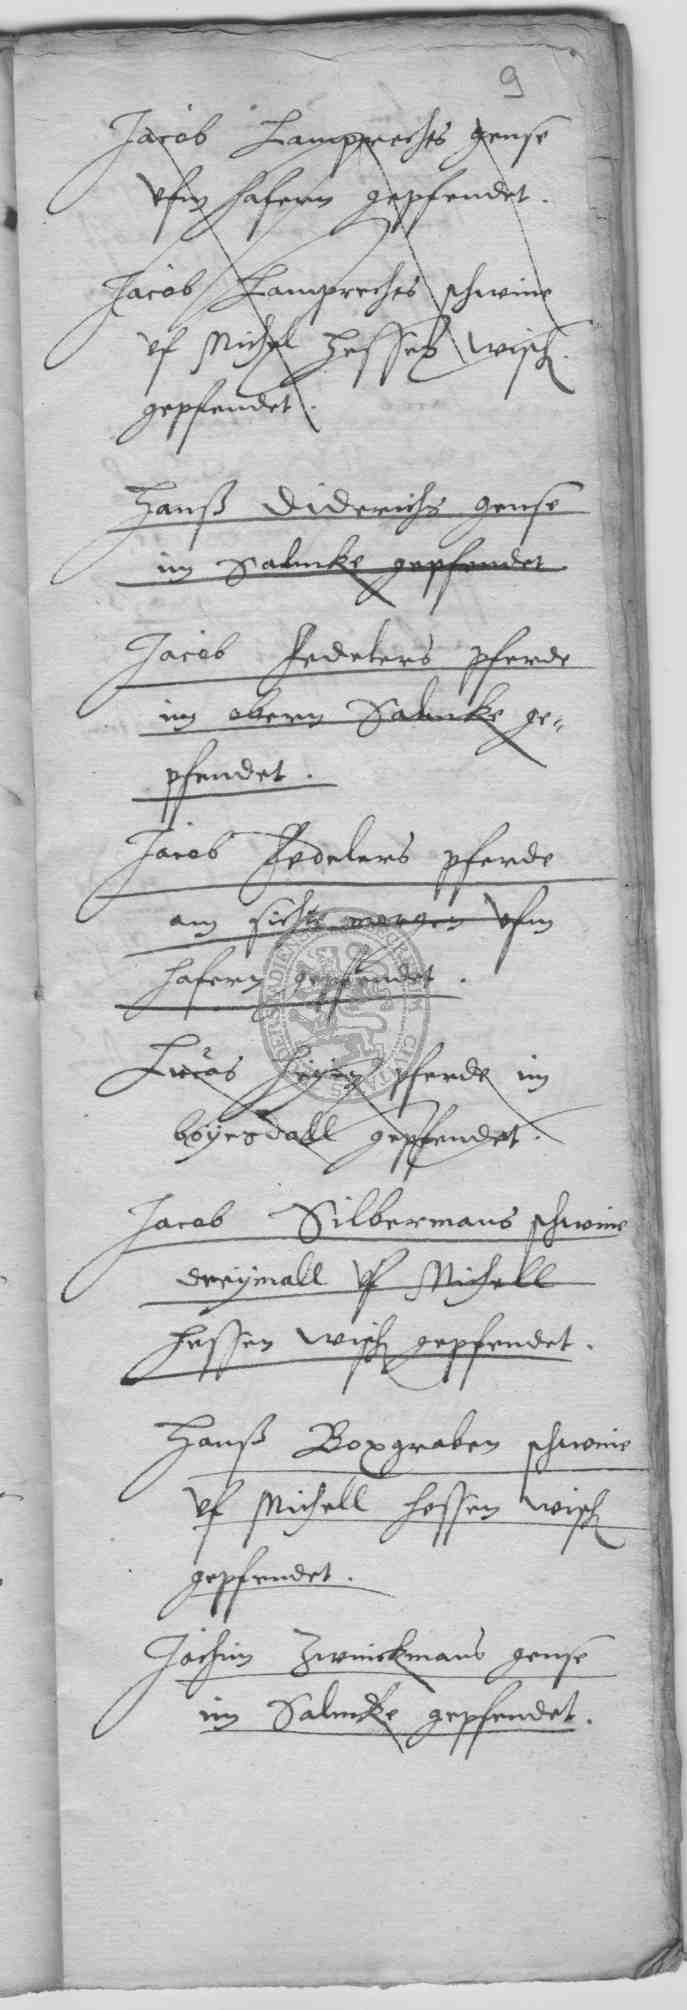 9
Jacob Lamprechts gense
vfm hafern gepfendet.
Jacob Lamprechts schweine
vf Michel Hessen wisch
gepfendet.
Hanß Diderichs gense
im Salmke gepfendet
Jacob Fedelers pferde
im obern Salmke ge-
pfendet.
Jacob Fedelers pferde
am sichte morgen vfm
hafern gepfendet.
Lucas pferde im
boÿersdall gepfendet.
Jacob Silbermans schweine
dreÿmall vf Michell
hessen wisch gepfendet.
Hanß Boxgraben schweine
vf Michell hessen wisch
gepfendet.
Jochim Zwinckmans gense
im Salmke gepfendet.